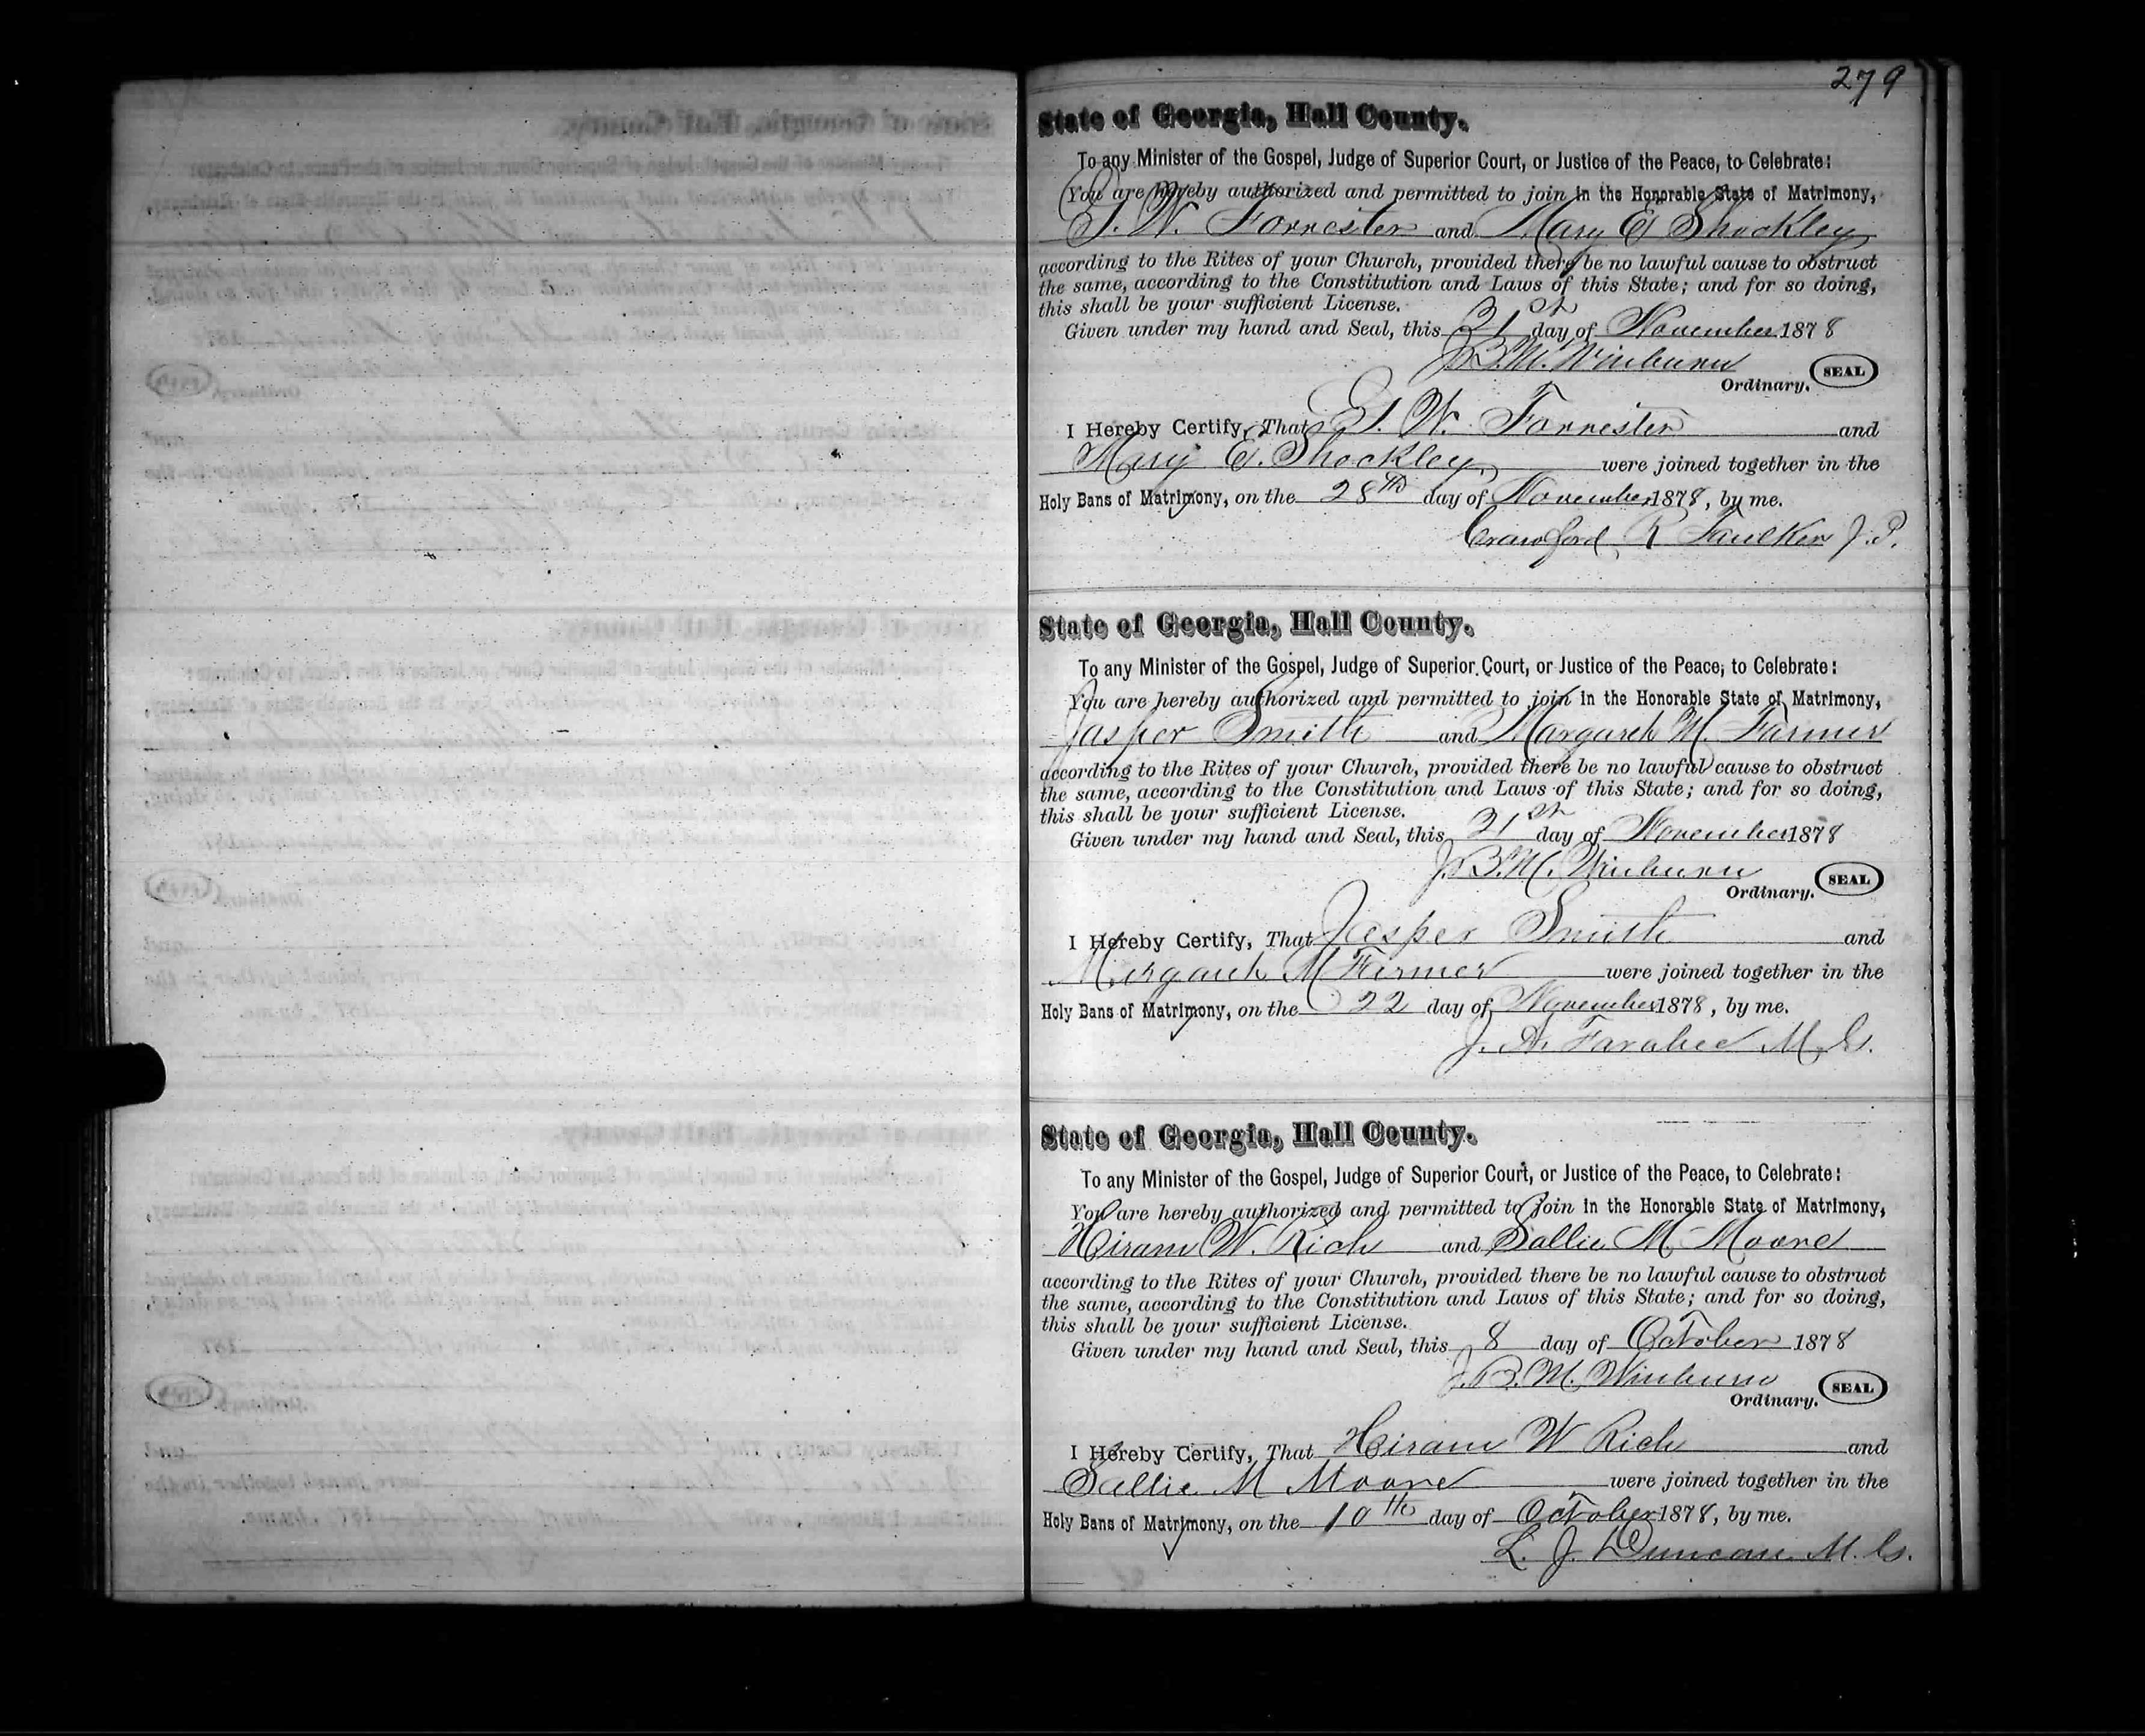 279
State of Georgia, Hall County.
To any Minister of the Gospel, Judge of Superior Court, or Justice of the Peace, to Celebrate:
You are hereby authorized and permitted to join in the Honorable State of Matrimony,
W. Forrester and Mary E Shockley
according to the Rites of your Church, provided there be no lawful cause to obstruct
the same, according to the Constitution and Laws of this State; and for so doing,
this shall be your sufficient License.
Given under my hand and Seal, this 21st day of November 1878
J. B. M. Winburn
Ordinary. SEAL
I Hereby Certify, That W. Forrester and
Mary E. Shockley were joined together in the
Holy Bans of Matrimony, on the 28th day of November 1878, by me.
Crawford R Faulkner J. P.
State of Georgia, Hall County.
To any Minister of the Gospel, Judge of Superior Court, or Justice of the Peace, to Celebrate:
You are hereby authorized and permitted to join in the Honorable State of Matrimony,
Jasper Smith and Margaret M. Farmer
according to the Rites of your Church, provided there be no lawful cause to obstruct
the same, according to the Constitution and Laws of this State; and for so doing,
this shall be your sufficient License.
Given under my hand and Seal, this 21st day of November 1878
J. B. M. Winburn
Ordinary. SEAL
I Hereby Certify, That Jasper Smith and
Margaret M Farmer were joined together in the
Holy Bans of Matrimony, on the 22 day of November 1878, by me.
J. A. Farabee M. G.
State of Georgia, Hall County.
To any Minister of the Gospel, Judge of Superior Court, or Justice of the Peace, to Celebrate:
You are hereby authorized and permitted to join in the Honorable State of Matrimony,
Hiram W. Rich and Sallie M Moore
according to the Rites of your Church, provided there be no lawful cause to obstruct
the same, according to the Constitution and Laws of this State; and for so doing,
this shall be your sufficient License.
Given under my hand and Seal, this 8 day of October 1878
J. B. M. Winburn
Ordinary. SEAL
I Hereby Certify, That Hiram W Rich and
Sallie M Moore were joined together in the
Holy Bans of Matrimony, on the 10th day of October 1878, by me.
L. J. Duncan M. G.